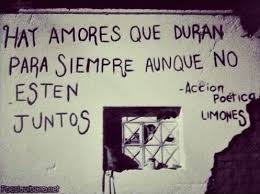 HAY AMORES QUE DURAN
PARA SIEMPRE AUNQUE NO
ESTEN
JUNTOS
-ACCION
POÉTICA
LIMONES